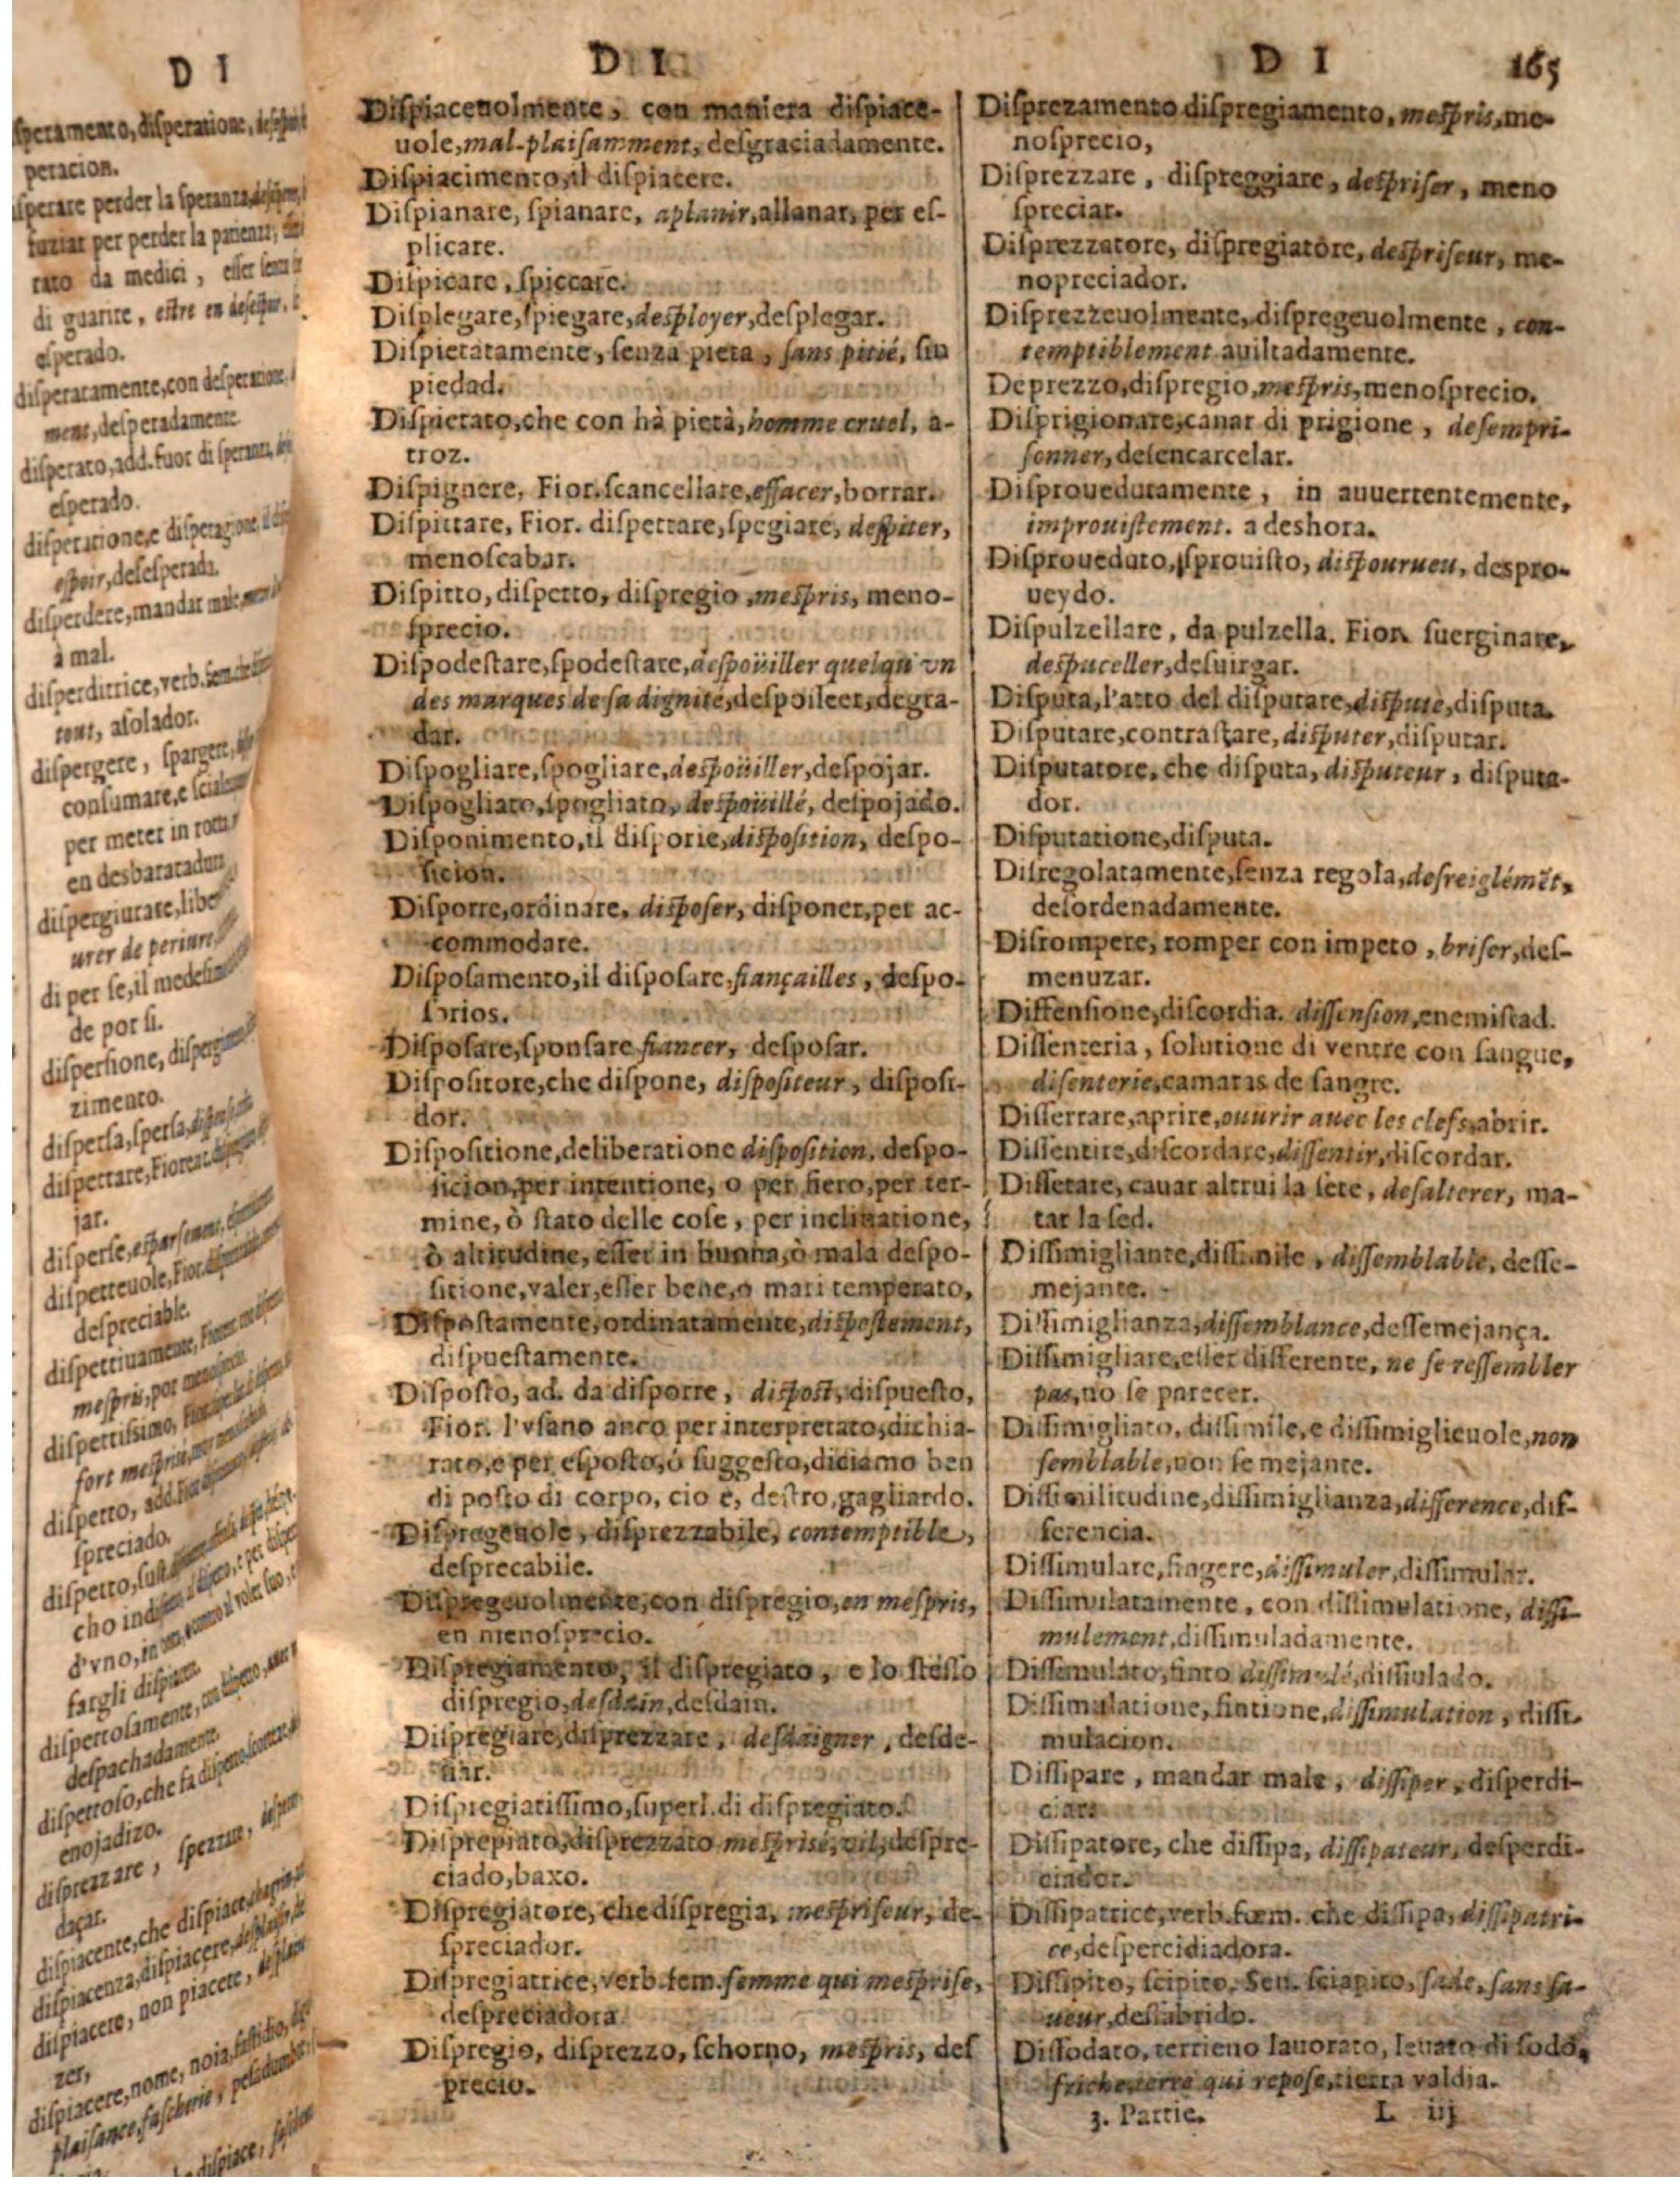 D I
peracion.
di guarire, estre en
esperado.
disperatamente, con desperatione
ment, desperadamente
disperato, add. fuor di speranza,
esperado.
espoir, desesperada.
disperdere, mandar male
à mal.
disperditrice, verb.
tout, asolador.
dispergere, spargere,
per meter in rotta
en desbaratadura
dispergiurare, libe
urer de periure
di per se, il medesimo
de por si.
dispersione,
zimento.
dispersa, spersa,
dispettare, Fiorent.
jar.
despreciable.
spreciado.
fargli dispiacere
despachadamente.
enojadizo.
disprezzare, sprezzar,
daçar.
dispiacente, che dispiace,
dispiacenza, dispiacere,
dispiacere, non piacere,
zer,
dispiacere, nome, noia, fastidio,
plaisance, fascherie,
D I
Diſpiaceuolmente, con maniera diſpiace-
uole, mal-plaiſamment, deſgraciadamente.
Diſpiacimento, il diſpiacere.
Diſpianare, ſpianare, aplanir, allanar, per eſ-
plicare.
Diſpicare, ſpiccare.
Diſplegare, ſpiegare, desployer, deſplegar.
Diſpietatamente, ſenza pieta, ſans pitié, ſin
piedad.
Diſpietato, che con hà pietà, homme cruel, a-
troz.
Diſpignere, Fior. ſcancellare, effacer, borrar.
Diſpittare, Fior. diſpettare, ſpegiare, deſpiter,
menoſcabar.
Diſpitto, diſpetto, diſpregio, meſpris, meno-
ſprecio.
Diſpodeſtare, ſpodeſtare, deſpoüiller quelqu'vn
des marques de ſa dignité, deſpoileer, degra-
dar.
Diſpogliare, ſpogliare, deſpoüiller, deſpojar.
Diſpogliato, ſpogliato, deſpoüillé, deſpojado.
Diſponimento, il diſporre, diſpoſition, deſpo-
ſicion.
Diſporre, ordinare, diſpoſer, diſponer, per ac-
commodare.
Diſpoſamento, il diſpoſare, fiançailles, deſpo-
ſorios.
Diſpoſare, ſponſare fiancer, deſpoſar.
Diſpoſitore, che diſpone, diſpoſiteur, diſpoſi-
dor.
Diſpoſitione, deliberatione diſpoſition, deſpo-
ſicion, per intentione, o per fiero, per ter-
mine, ò ſtato delle coſe, per inclinatione,
ò altitudine, eſſer in buona, ò mala deſpo-
ſitione, valer, eſſer bene, o mari temperato,
Diſpoſtamente, ordinatamente, diſpoſtement,
diſpueſtamente.
Diſpoſto, ad. da diſporre, diſpoſt, diſpueſto,
Fior. l'vſano anco per interpretato, dichia-
rato, e per eſpoſto, ò ſuggeſto, diciamo ben
di poſto di corpo, cio è, deſtro, gagliardo.
Diſpregeuole, diſprezzabile, contemptible,
deſprecabile.
Diſpregeuolmente, con diſpregio, en meſpris,
en menoſprecio.
Diſpregiamento, il diſpregiato, e lo ſteſſo
diſpregio, deſdain, deſdain.
Diſpregiare, diſprezzare, deſdaigner, deſde-
ñar.
Diſpregiatiſſimo, ſuperl. di diſpregiato.
Diſprepiato, diſprezzato meſpriſé, vil, deſpre-
ciado, baxo.
Diſpregiatore, che diſpregia, meſpriſeur, de-
ſpreciador.
Diſpregiatrice, verb. fem. femme qui meſpriſe,
deſpreciadora.
Diſpregio, diſprezzo, ſchorno, meſpris, deſ
precio.
D I 165
Diſprezamento diſpregiamento, meſpris, me-
noſprecio,
Diſprezzare, diſpreggiare, deſpriſer, meno
ſpreciar.
Diſprezzatore, diſpregiatore, deſpriſeur, me-
nopreciador.
Diſprezzeuolmente, diſpregeuolmente, con-
temptiblement auiltadamente.
Deprezzo, diſpregio, meſpris, menoſprecio.
Diſprigionare, cauar di prigione, deſempri-
ſonner, deſencarcelar.
Diſprouedutamente, in auuertentemente,
improuiſtement. a deshora.
Diſproueduto, ſprouiſto, diſpourueu, despro-
ueydo.
Diſpulzellare, da pulzella. Fior. ſuerginare,
despuceller, deſuirgar.
Diſputa, l'atto del diſputare, diſpute, diſputa.
Diſputare, contraſtare, diſputer, diſputar.
Diſputatore, che diſputa, diſputeur, diſputa-
dor.
Diſputatione, diſputa.
Diſregolatamente, ſenza regola, deſreiglémēt,
deſordenadamente.
Diſrompere, romper con impeto, briſer, deſ-
menuzar.
Diſſenſione, diſcordia. diſſenſion, enemiſtad.
Diſſenteria, ſolutione di ventre con ſangue,
diſenterie, camaras de ſangre.
Diſſerrare, aprire, ouurir auec les clefs, abrir.
Diſſentire, diſcordare, diſſentir, diſcordar.
Diſſetare, cauar altrui la ſete, deſalterer, ma-
tar la ſed.
Diſſimigliante, diſſimile, diſſemblable, deſſe-
mejante.
Diſſimiglianza, diſſemblance, deſſemejança.
Diſſimigliare, eſſer differente, ne ſe reſſembler
pas, no ſe parecer.
Diſſimigliato, diſſimile, e diſſimiglieuole, non
ſemblable, non ſemejante.
Diſſimilitudine, diſſimiglianza, difference, dif-
ferencia.
Diſſimulare, fingere, diſſimuler, diſſimular.
Diſſimulatamente, con diſſimulatione, diſſi-
mulement, diſſimuladamente.
Diſſemulato, finto diſſimulé, diſſiulado.
Diſſimulatione, fintione, diſſimulation, diſſi-
mulacion.
Diſſipare, mandar male, diſſiper, diſperdi-
ciar.
Diſſipatore, che diſſipa, diſſipateur, deſperdi-
ciador.
Diſſipatrice, verb. fœm. che diſſipa, diſſipatri-
ce, deſpercidiadora.
Diſſipito, ſcipito. Sen. ſciapito, fade, ſans ſa-
ueur, deſſabrido.
Diſſodato, terrieno lauorato, leuato di ſodo,
friche, terre qui repoſe, tierra valdia.
3. Partie. L iij